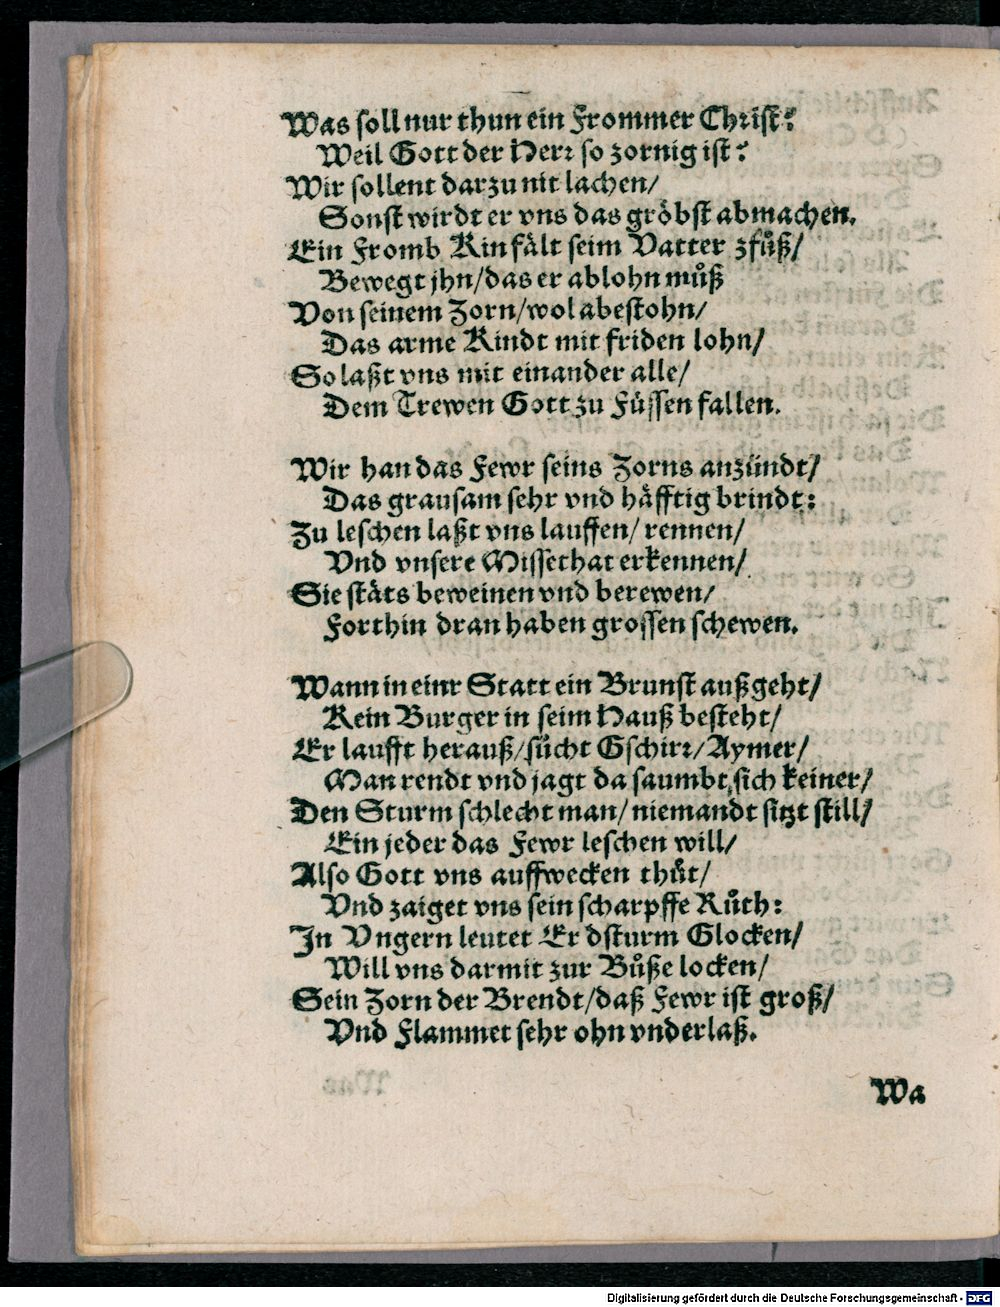 Was soll nur thun ein Frommer Christ?
Weil Gott der Herr so zornig ist?
Wir sollent darzu nit lachen/
Sonst wirdt er vns das gröbst abmachen.
Ein Fromb Kin fält seim Vatter zfůß/
Bewegt jhn/das er ablohn můß
Von seinem Zorn/wol abestohn/
Das arme Kindt mit friden lohn/
So laßt vns mit einander alle/
Dem Trewen Gott zu Füssen fallen.
Wir han das Fewr seins Zorns anzündt/
Das grausam sehr vnd häfftig brindt:
Zu leschen laßt vns lauffen/ rennen/
Vnd vnsere Missethat erkennen/
Sie stäts beweinen vnd berewen/
Forthin dran haben grossen schewen.
Wann in einr Statt ein Brunst außgeht/
Kein Burger in seim Hauß besteht/
Er laufft herauß/sůcht Gschirr/Aymer/
Man rendt vnd jagt da saumbt sich keiner/
Den Sturm schlecht man/ niemandt sitzt still/
Ein jeder das Fewr leschen will/
Also Gott vns auffwecken thůt/
Vnd zaiget vns sein scharpffe Růth:
In Vngern leutet Er dsturm Glocken/
Will vns darmit zur Bůße locken/
Sein Zorn der Brendt/daß Fewr ist groß/
Vnd Flammet sehr ohn vnderlaß.
Wa
Digitalisierung gefördert durch die Deutsche Forschungsgemeinschaft - DFG